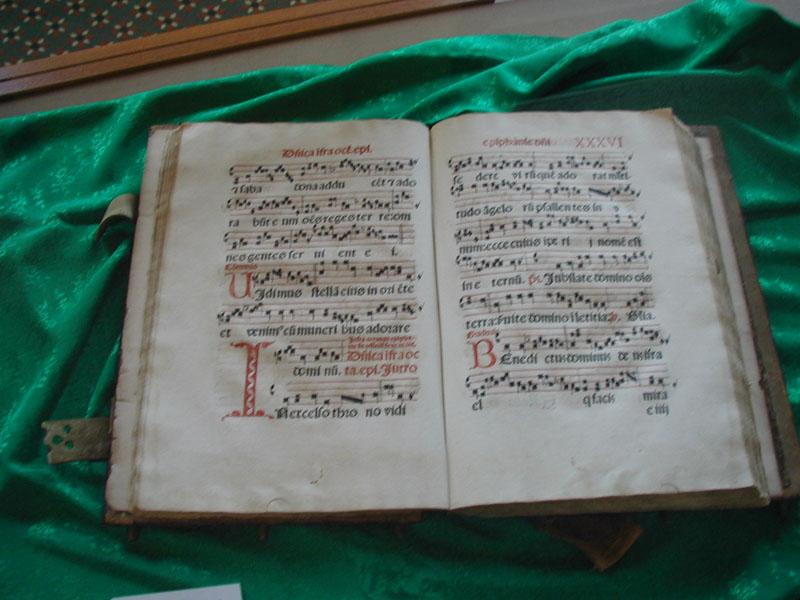 Dñica ifra oct. epi.
⁊ saba tona addu cēt ⁊ ado
ra būt e um oēs reges ter re om
nes gentes ser ui ent e i.
Communio
UIdimus stellā eius in ori ēte
et venim⁹ cū muneri bus adorare
domi nū. Dñica ifra oc
ta. epi. Jntro
IN excelso thro no vidi
epiphanie dñi XXXVI
se dere vi rū quē ado rat mlti
tudo āgelo rū psallentes in
num: ecce cuius ipe ri j nomē est
in e ternū. ps. Jubilate domino ois
terra: suite domino i letitia. Glia.
BEnedi ctus dominus de us isra
el q facis mira
e iiij